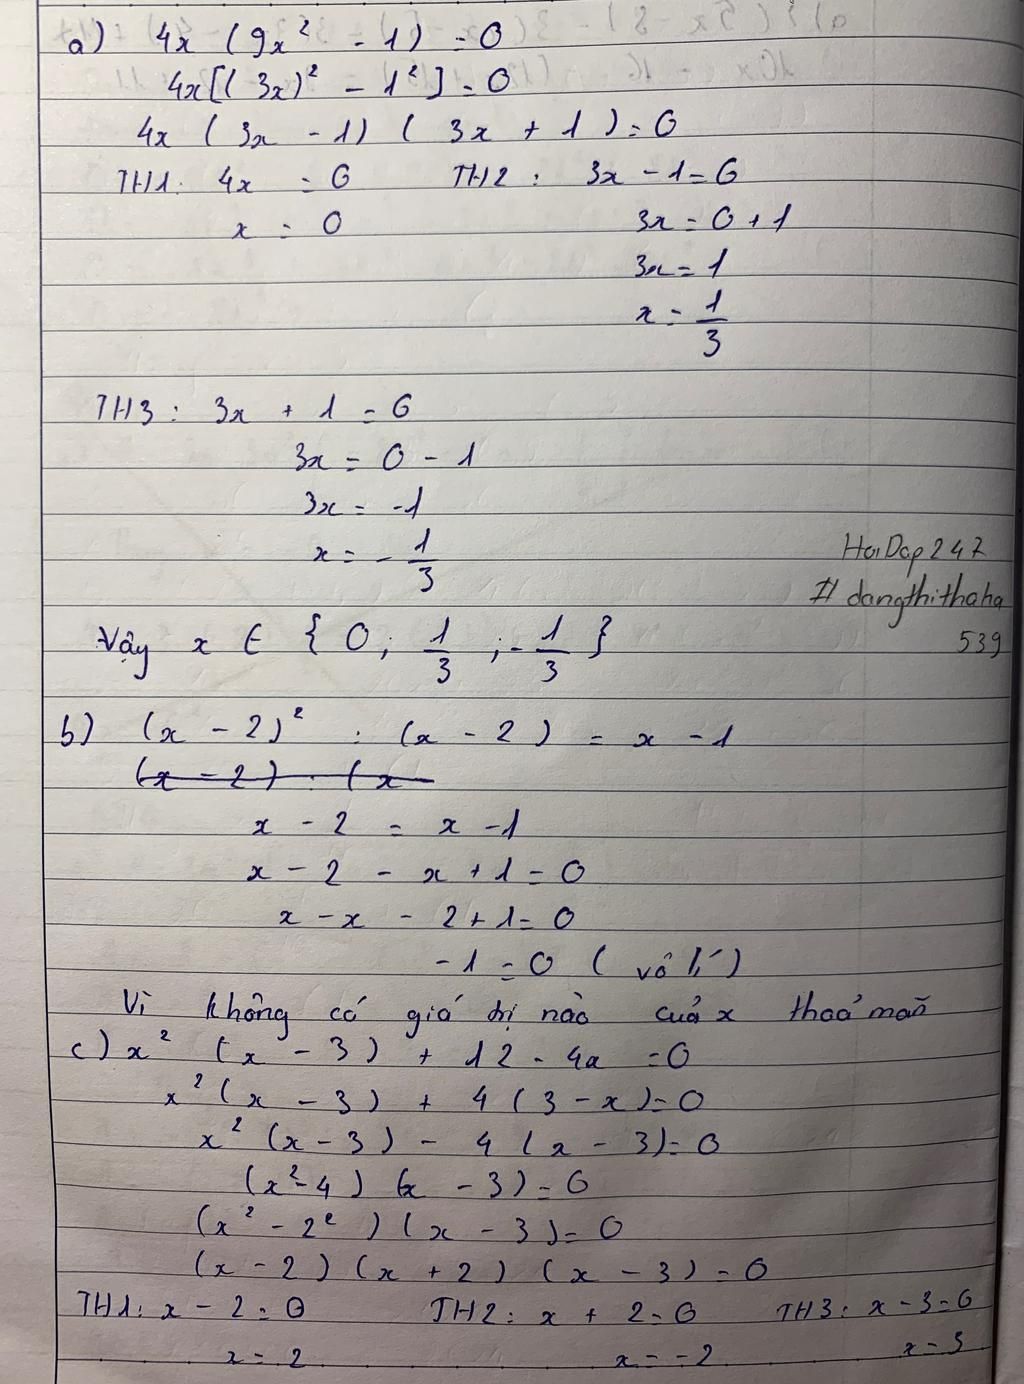 a) 4x (9x² - 1) = 0
4x[(3x)² - 1²] = 0
4x (3x - 1) (3x + 1) = 0
TH1: 4x = 0 TH2: 3x - 1 = 0
x = 0 3x = 0 + 1
3x = 1
x = 1/3
TH3: 3x + 1 = 0
3x = 0 - 1
3x = -1
x = - 1/3
HoiDap247
# dangthithaha
539
Vậy x ∈ { 0; 1/3 ; - 1/3 }
b) (x - 2)² : (x - 2) = x - 1
(x - 2) : (x
x - 2 = x - 1
x - 2 - x + 1 = 0
x - x - 2 + 1 = 0
-1 = 0 (vô lí)
Vì không có giá trị nào của x thoả mãn
c) x² (x - 3) + 12 - 4x = 0
x² (x - 3) + 4 (3 - x) = 0
x² (x - 3) - 4 (x - 3) = 0
(x² - 4) (x - 3) = 0
(x² - 2²) (x - 3) = 0
(x - 2) (x + 2) (x - 3) = 0
TH1: x - 2 = 0 TH2: x + 2 = 0 TH3: x - 3 = 0
x = 2 x = -2 x = 3